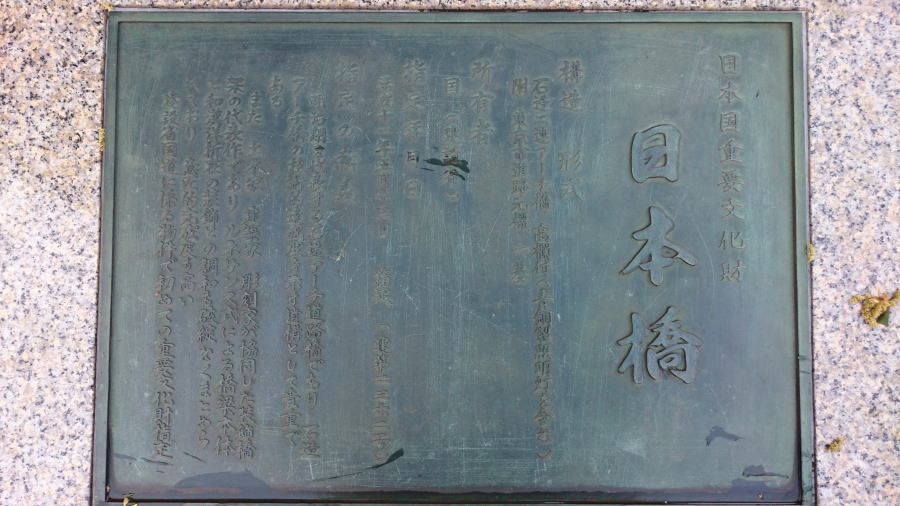 日本国重要文化財
日本橋
構造 形式
石造二連アーチ橋 高欄付(青銅製照明灯を含む)
附 東京市道路元標 一基
所有者
国(建設省)
指定年月日
指定の意義
明治期を代表する石造アーチ道路橋であり 石造
アーチ橋の技術的達成度を示す遺構として貴重で
ある
また 土木家 建築家 彫刻家が協同した装飾橋
架の代表作であり ルネサンス式による橋梁本体
と和漢洋折衷の装飾との調和も破綻なくまとめら
れており 意匠的完成度も高い
建設省国道に係る物件で初めての重要文化財指定